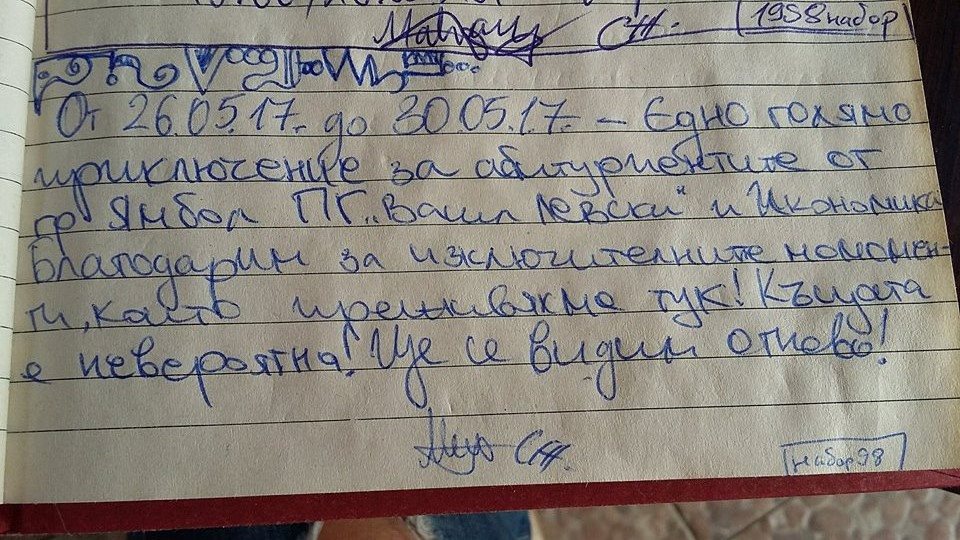 1958 набор
От 26.05.17. до 30.05.17. – Едно голямо
приключение за абитуриентите от
гр Ямбол ПГ „Васил Левски" и Икономика
Благодарим за изключителните момомен-
ти, които преживяхме тук! Къщата
е невероятна! Ще се видим отново!
СЖ.
набор 98